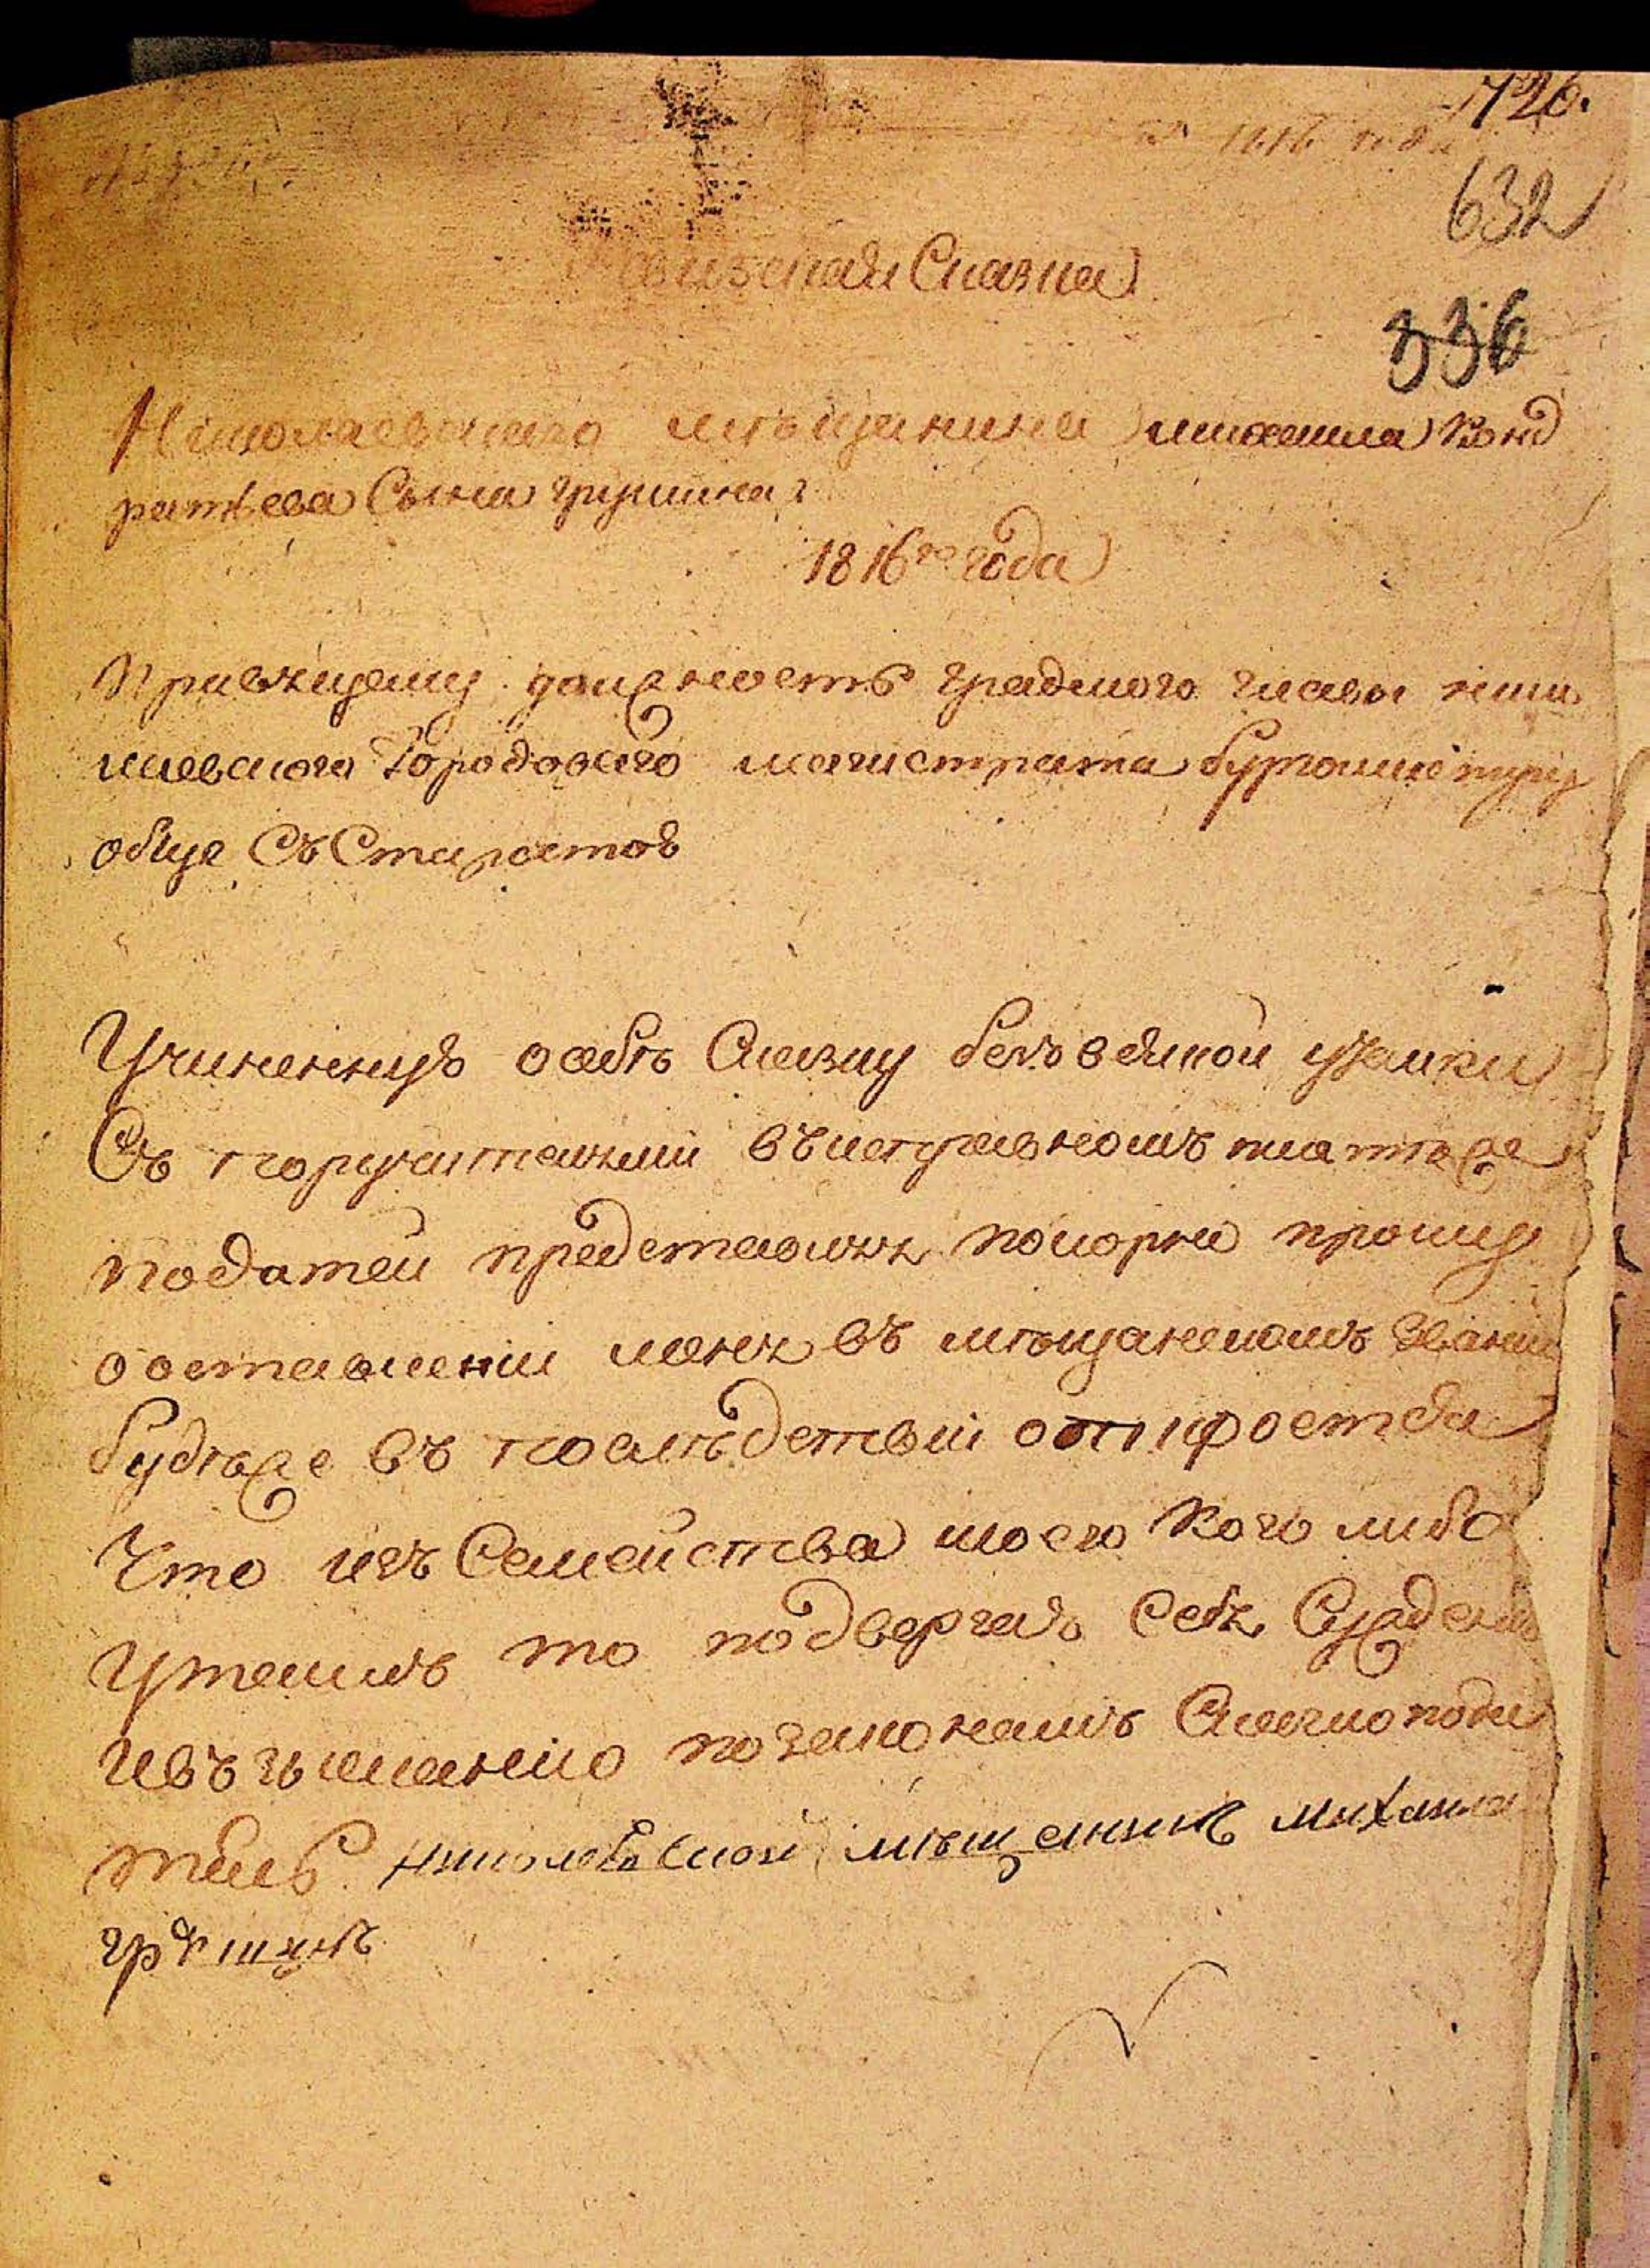 726.
632
336
Ревизская Сказка
Николаевскаго мѣщанина михаилаКонд
ратьева Сына грушина
1816го года
Правящему должность градского главы киши
невского Городоваго магистрата
обще Съ Старостов
Учиненную о себѣ Сказку безъ всякой утайки
Съ поручителями въ исправномъ платеже
податей представляя покорно прошу
о оставлении меня въ мѣщанскомъ звании
будѣже въ последствии откроется
Что изъ Семейства моего Кого либо
Утаилъ то подвергаю Себя Суждению
по законамъ Сказкопода
тель николаевской мѣщенинъ михаила
грꙋшинъ